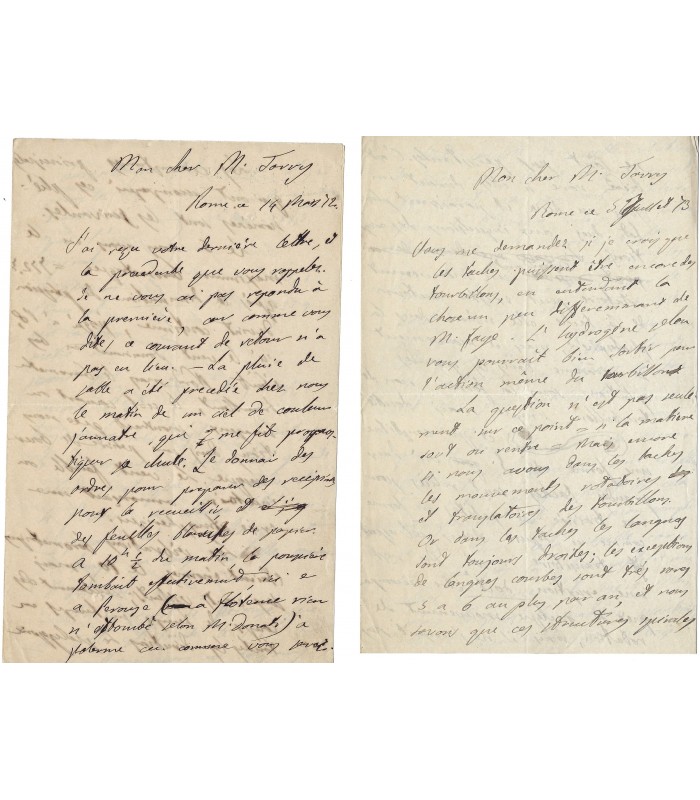 Mon cher M. Tarry
Rome ce 14 Mars 72.
J'ai reçu votre dernière lettre, et
la precedente que vous rappelez.
Je ne vous ai pas repondu à
la première, car comme vous
dites, ce courant de retour n'a
pas eu lieu. — La pluie de
sable a été precedée chez nous
le matin de un ciel de couleur
jaunatre, qui me fit
sa chute. Je donnai des
ordres pour preparer des
pour la recueillir, et
des feuilles blanches de papier
A 10h ½ du matin la poussière
tombait effectivement ici e
a Perouse (à Florence rien
n'est tombé selon M. Donati) a
palerme ou comme vous
Mon cher M. Tarry
Rome ce 5 Juillet 73
Vous me demandez si je crois que
les taches puissent être encore des
tourbillons, en entendant la
chose un peu differemment de
M. Faye. L'hydrogène selon
vous pourrait bien sortir par
l'action même du tourbillon
La question n'est pas seule-
ment sur ce point = si la matière
sort ou rentre = mais encore
si nous avons dans les taches
les mouvements rotatoires
et translatoires des tourbillons.
Or dans les taches les langues
sont toujours droites: les exceptions
de langues courbes sont très rares
5 a 6 au plus par an, et nous
savons que ces structures spirales